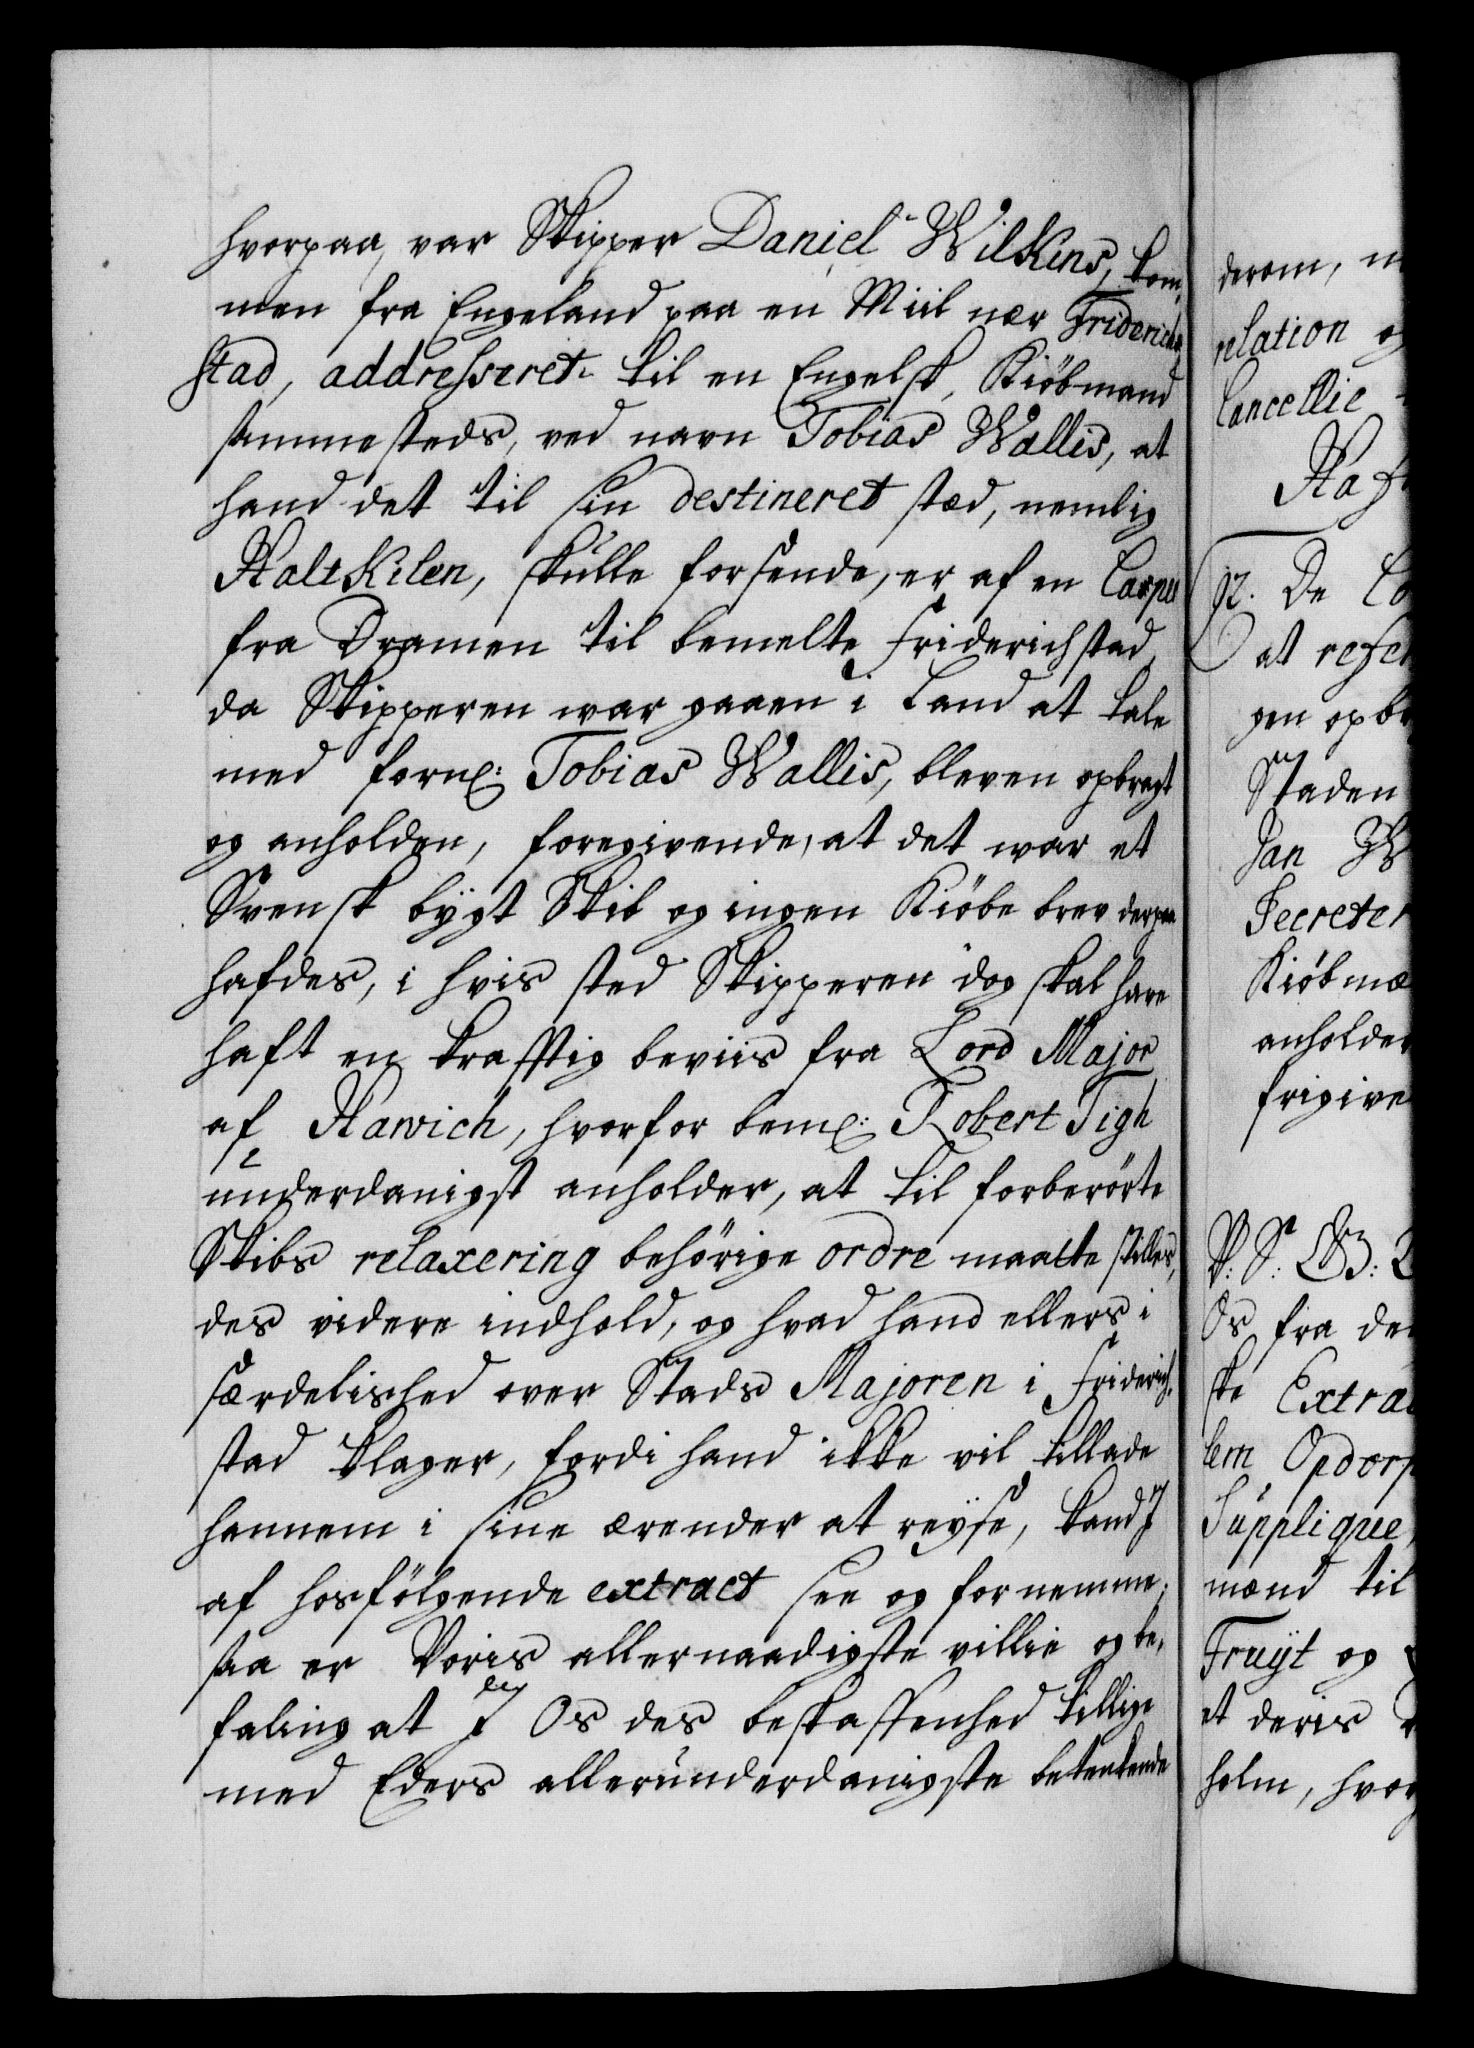 hvorpaa, var Skipper Daniel Wilkins, kom-
men fra Engeland paa en Miil nær Friderich-
stad, addresseret til en Engelsk Kiöbmand
sammesteds, ved navn Tobias Wallis, at
hand det til sin destineret stæd, nemlig
Halt Kilen, skulle forsende, er af en Caper
fra Dramen til bemelte Friderichstad,
da Skipperen war gaaen i Land at tale
med forn: Tobias Wallis, bleven opbragt
og anholden, foregivende, at det war et
Svensk bÿgt Skib og ingen Kiöbe brev derpaa
hafdes, i hvis sted Skipperen dog skal have
haft en kraftig beviis fra Lord Major
af Harvich, hvorfor bem: Robert Tigh
underdanigst anholder, at til forberörte
Skibs relaxering behörige ordre maatte stilles,
des videre indhold, og hvad hand ellers i
særdelished over Stads Majoren i Friderich-
stad klager, fordi hand ikke vil tillade
hannem i sine ærender at reÿse, kand I
af hosfölgende extract see og fornemme;
saa er Voris allernaadigste villie og be-
faling at I Os des beskaffenhed tillige
med Eders allerunderdanigste betenkende
derom, 
relation og
Cancellie
92. De
at
gen
Staden
Jan W
Secreter
Kiöbmæ
anholder
frigive
Os fra de
ske Extra
lem Opdorp
Supplique,
mænd til
Fruÿt og
et deris
holm, hvor